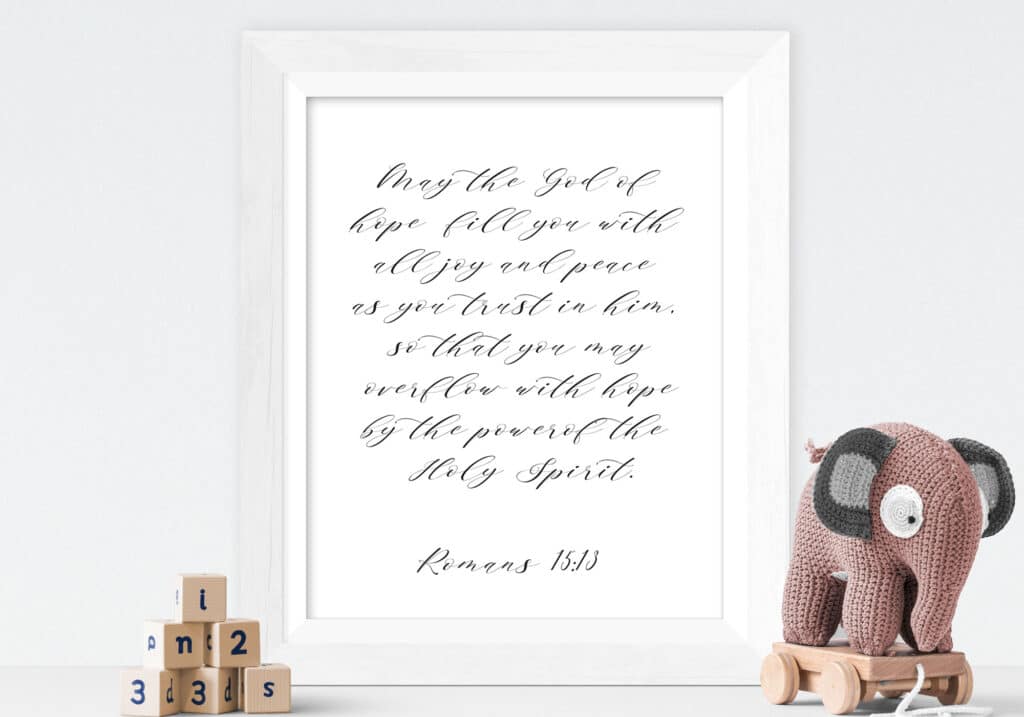 May the God of
hope fill you with
all joy and peace
as you trust in him,
so that you may
overflow with hope
by the powerof the
Holy Spirit.
Romans 15:13
i
n 2
3 d 3 d s